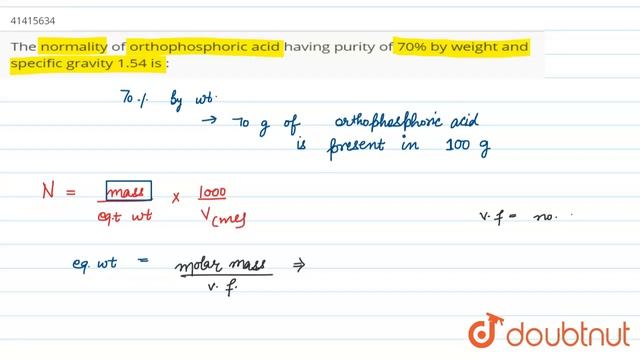 41415634
The normality of orthophosphoric acid having purity of 70% by weight and
specific gravity 1.54 is :
70 % By wt.
→ 70 g of orthophosphoric acid
is present in 100 g
N = mass / eq.t wt × 1000 / V(ml)
v.f = no.
eq. wt = molar mass / v. f. ⇒
doubtnut